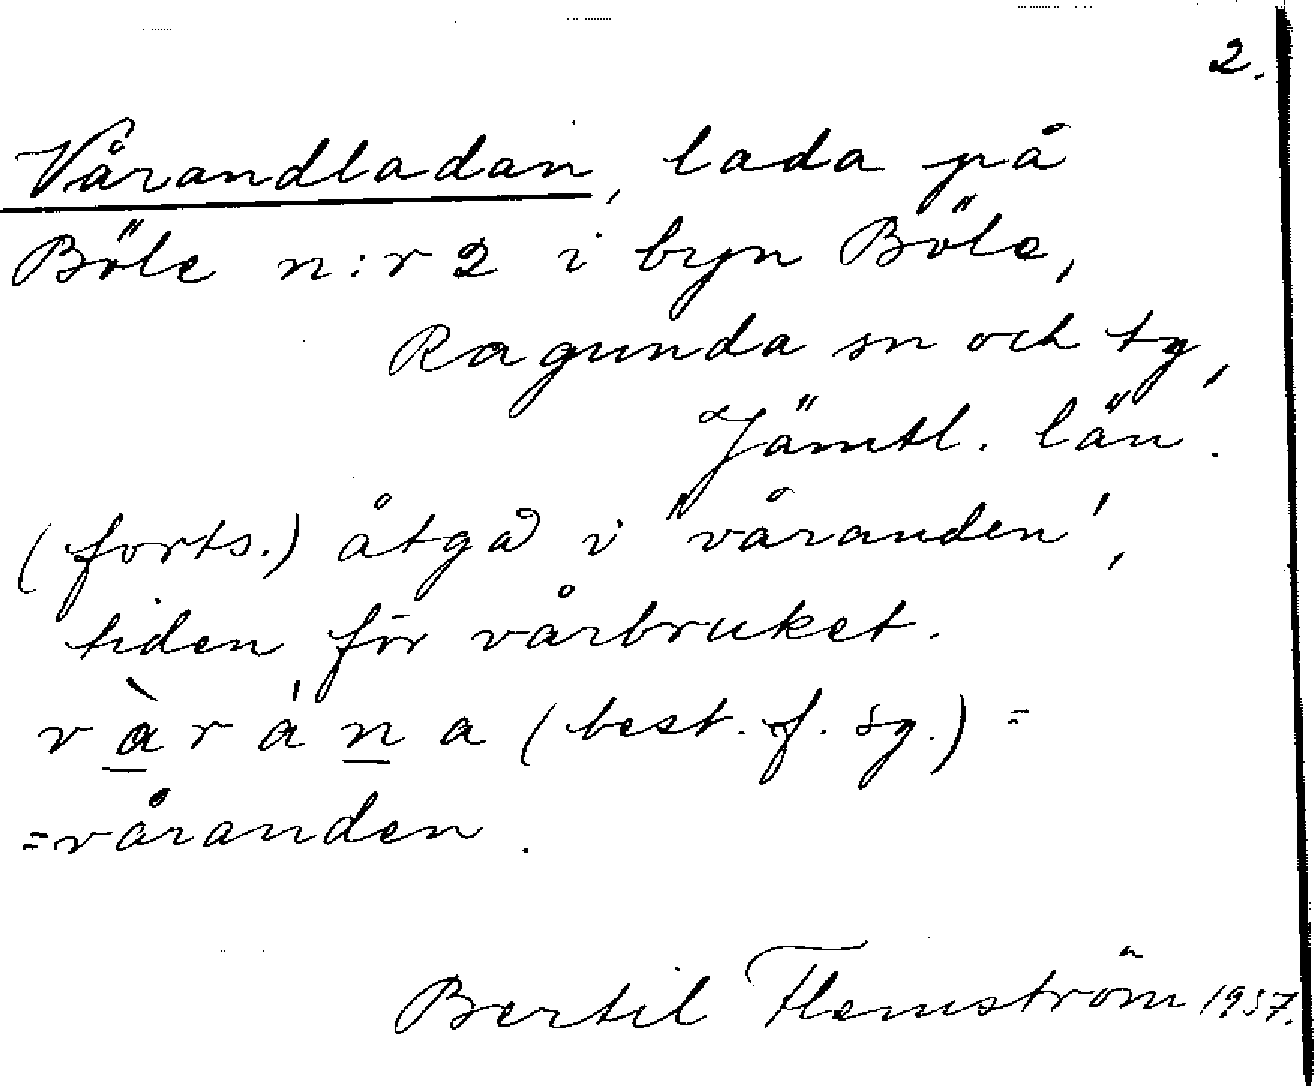 2.
Vårandladan, lada på
Böle n:r 2 i byn Böle,
Ragunda sn och tg,
Jämtl. län.
(forts.) åtgå i "våranden",
tiden för vårbruket.
v à r á n a (best. f. sg.) =
= våranden.
Bertil Flemström 1957.